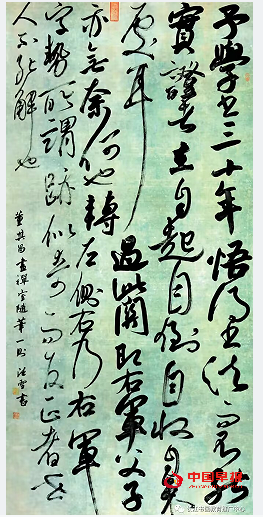 予學書三十年悟得書法而不能
實證者在自起自倒自收自束
處耳過此關即右軍父子
亦無奈何也轉左側右乃右軍
字勢所謂跡似奇而反正者世
人不能解也
董其昌畫禪室隨筆一則 書
中国早报